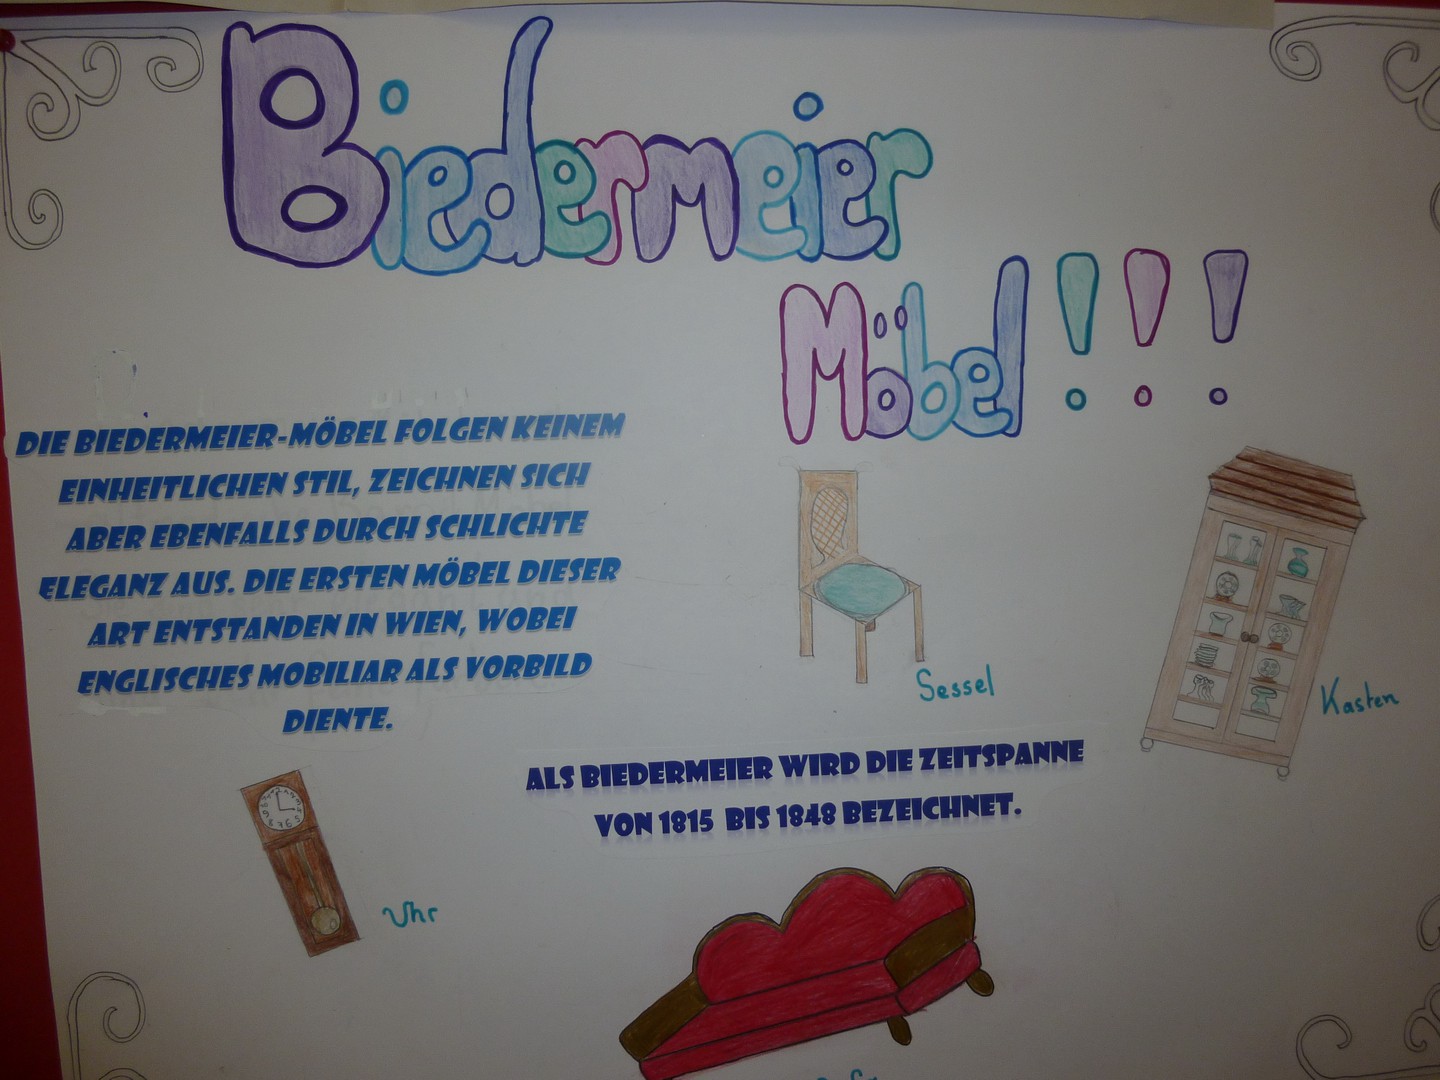 Biedermeier
Möbel!!!
DIE BIEDERMEIER-MÖBEL FOLGEN KEINEM
EINHEITLICHEN STIL, ZEICHNEN SICH
ABER EBENFALLS DURCH SCHLICHTE
ELEGANZ AUS. DIE ERSTEN MÖBEL DIESER
ART ENTSTANDEN IN WIEN, WOBEI
ENGLISCHES MOBILIAR ALS VORBILD
DIENTE.
Sessel
Kasten
ALS BIEDERMEIER WIRD DIE ZEITSPANNE
VON 1815 BIS 1848 BEZEICHNET.
Uhr